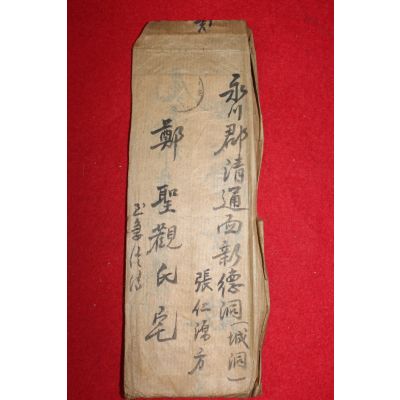 永川郡淸通面新德洞(城洞)
張仁源方
鄭聖觀氏宅